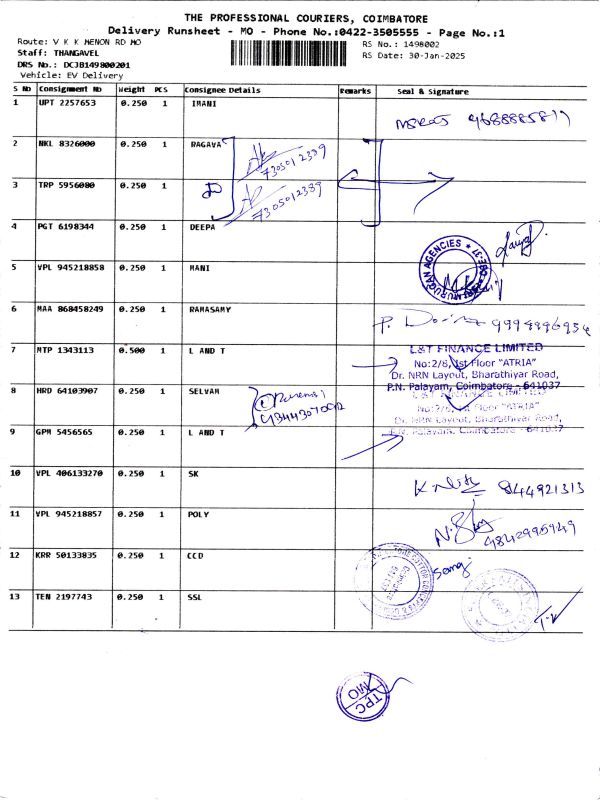 THE PROFESSIONAL COURIERS, COIMBATORE
Delivery Runsheet - MO - Phone No.:0422-3505555 - Page No.:1
Route: V K K MENON RD MO
Staff: THANGAVEL
DRS No.: DCJB149800201
Vehicle: EV Delivery
RS No.: 1498002
RS Date: 30-Jan-2025
S No Consignment No Weight PCS Consignee Details Remarks Seal & Signature
1 UPT 2257653 0.250 1 IMANI
2 NKL 8326000 0.250 1 RAGAVA
7305012389
3 TRP 5956080 0.250 1
7305012389
4 PGT 6198344 0.250 1 DEEPA
5 VPL 945218858 0.250 1 MANI
MURUGAN AGENCIES
6 MAA 868458249 0.250 1 RAMASAMY
7 MTP 1343113 0.500 1 L AND T
L&T FINANCE LIMITED
No:2/8, 1st Floor "ATRIA"
Dr. NRN Layout, Bharathiyar Road,
P.N. Palayam, Coimbatore - 641037
8 HRD 64103907 0.250 1 SELVAM
L&T FINANCE LIMITED
No:2/8, 1st Floor "ATRIA"
Dr. NRN Layout, Bharathiyar Road,
P.N. Palayam, Coimbatore - 641037
9 GPM 5456565 0.250 1 L AND T
10 VPL 406133270 0.250 1 SK
844921313
11 VPL 945218857 0.250 1 POLY
9842995949
12 KRR 50133835 0.250 1 CCD
13 TEN 2197743 0.250 1 SSL
TPC
MO